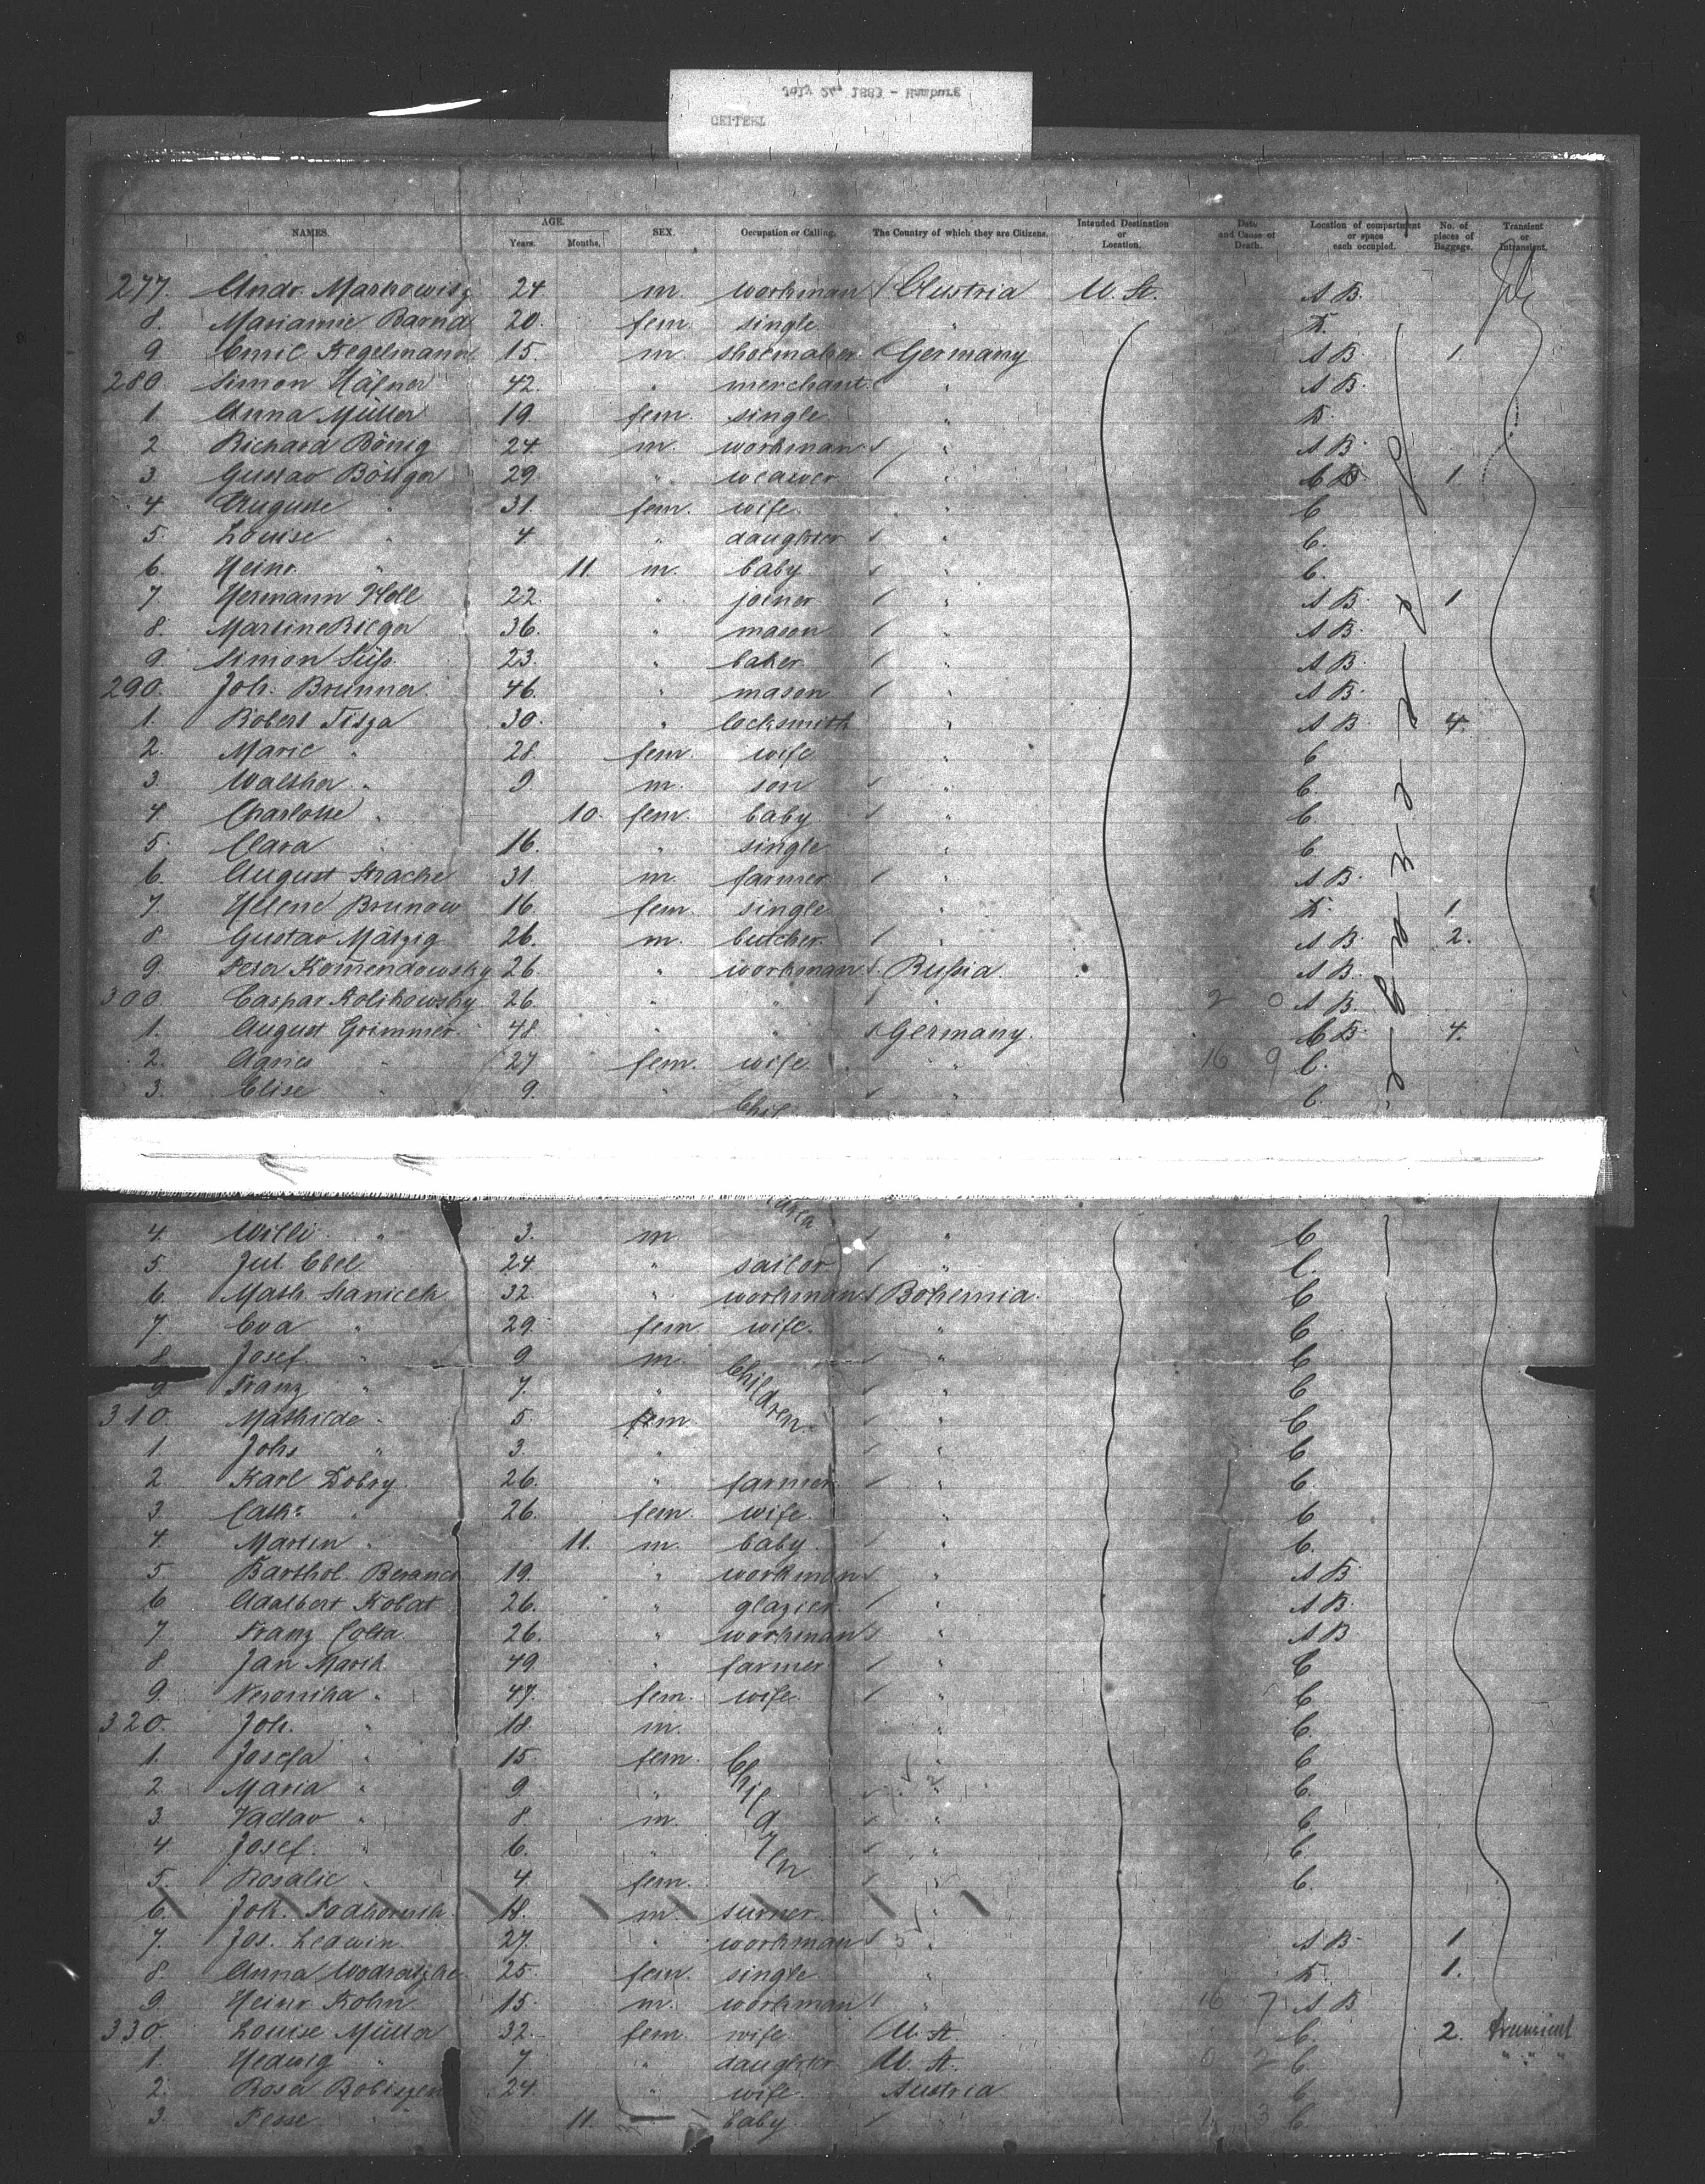 GEITERT
NAMES. AGE. Years. Months. SEX. Occupation or Calling. The Country of which they are Citizens. Intended Destination or Location. Date and Cause of Death. Location of compartment or space each occupied. No. of pieces of Baggage. Transient or Intransient.
277. Andr. Markowisz 24 m. workman Austria U. St. A B.
8. Marianne Barnd 20. fem. single " K.
9 Emil Kegelmann 15. m. shoemaker Germany A B. 1.
280. Simon Häfner 42. " merchant " A B.
1. Anna Müller 19. fem. single " K.
2 Richard Bönig 24. m. workman " A B.
3. Gustav Böttger 29. " weawer " C 1.
4 Auguste " 31. fem. wife. " C
5. Louise " 4 " daughter " C.
6. Heinr. " 11. m. baby " C.
7. Hermann 22. " joiner " A B. 1
8. Martin Rieger 36. " mason " A B.
9. Simon Süss 23. " baker " A B.
290. Joh. Brunner 46. " mason " A B.
1. Robert Tisza 30. " locksmith " A B. 4.
2. Marie " 28. fem. wife " C
3. Walther " 9. m. son " C.
4 Charlotte " 10. fem. baby " C.
5. Clara " 16. " single " C
6. August Strache 31. m. farmer " A B.
7. Helene Brunow 16. fem. single " K. 1
8 Gustav Mätzig 26. m. butcher " A B. 2.
9. Peter Komendowsky 26 " workman Russia A B.
300. Caspar Kolikowsky 26. " " " 2 0 A B.
1. August Grimmer 48. " " Germany. C B. 4.
2. Agnes " 27 fem. wife " 16 9 C.
3. Elise " 9. " Chil " C.
4. Willi " 3. m. " C
5. Jul. Ebel 24 " sailor " C.
6. Math. Hanicek 32. " workman Bohemia. C
7. Eva " 29. fem. wife. " C
8 Josef " 9 m. Children " C
9. Franz " 7. " " C
310. Mathilde " 5 fem. " C
1. Johs " 3 " " C
2 Karl Dobry 26. " farmer " C.
3. Cath. " 26. fem. wife. " C
4. Martin " 11. m. baby " C.
5 Barthol. Beranek 19. " workman " A B.
6 Adalbert Kobat 26. " glazier " A B.
7 Franz Colta 26. " workman " A B
8 Jan Marik 49. " farmer " C
9. Veronika " 47. fem. wife. " C
320. Joh. " 18. m. " C.
1. Josefa " 15. fem. Children " C
2 Maria " 9. " " C.
3. Vaclav " 8. m. " C.
4 Josef " 6. " " C.
5. Rosalie " 4. fem. " C.
6. Joh. 18. m. surner. "
7. Jos. Ledwin 27. " workman " A B. 1
8. Anna 25. fem. single " K. 1.
9. Heinr. Kohn 15. m. workman " 16 7 A B
330. Louise Müller 32. fem. wife U. St. C. 2. transient
1. Hedwig " 7 " daughter U. St. 2 C. " " "
2. Rosa 24. " wife Austria C
3. " 11. baby " 3 C.